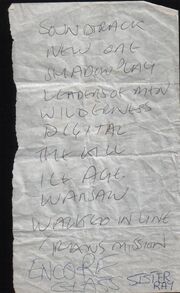 SOUNDTRACK
NEW ONE
SHADOWPLAY
LEADERS OF MEN
WILDERNESS
DIGITAL
THE KILL
ICE AGE
WARSAW
WALKED IN LINE
MISSION
ENCORE
SISTER
RAY